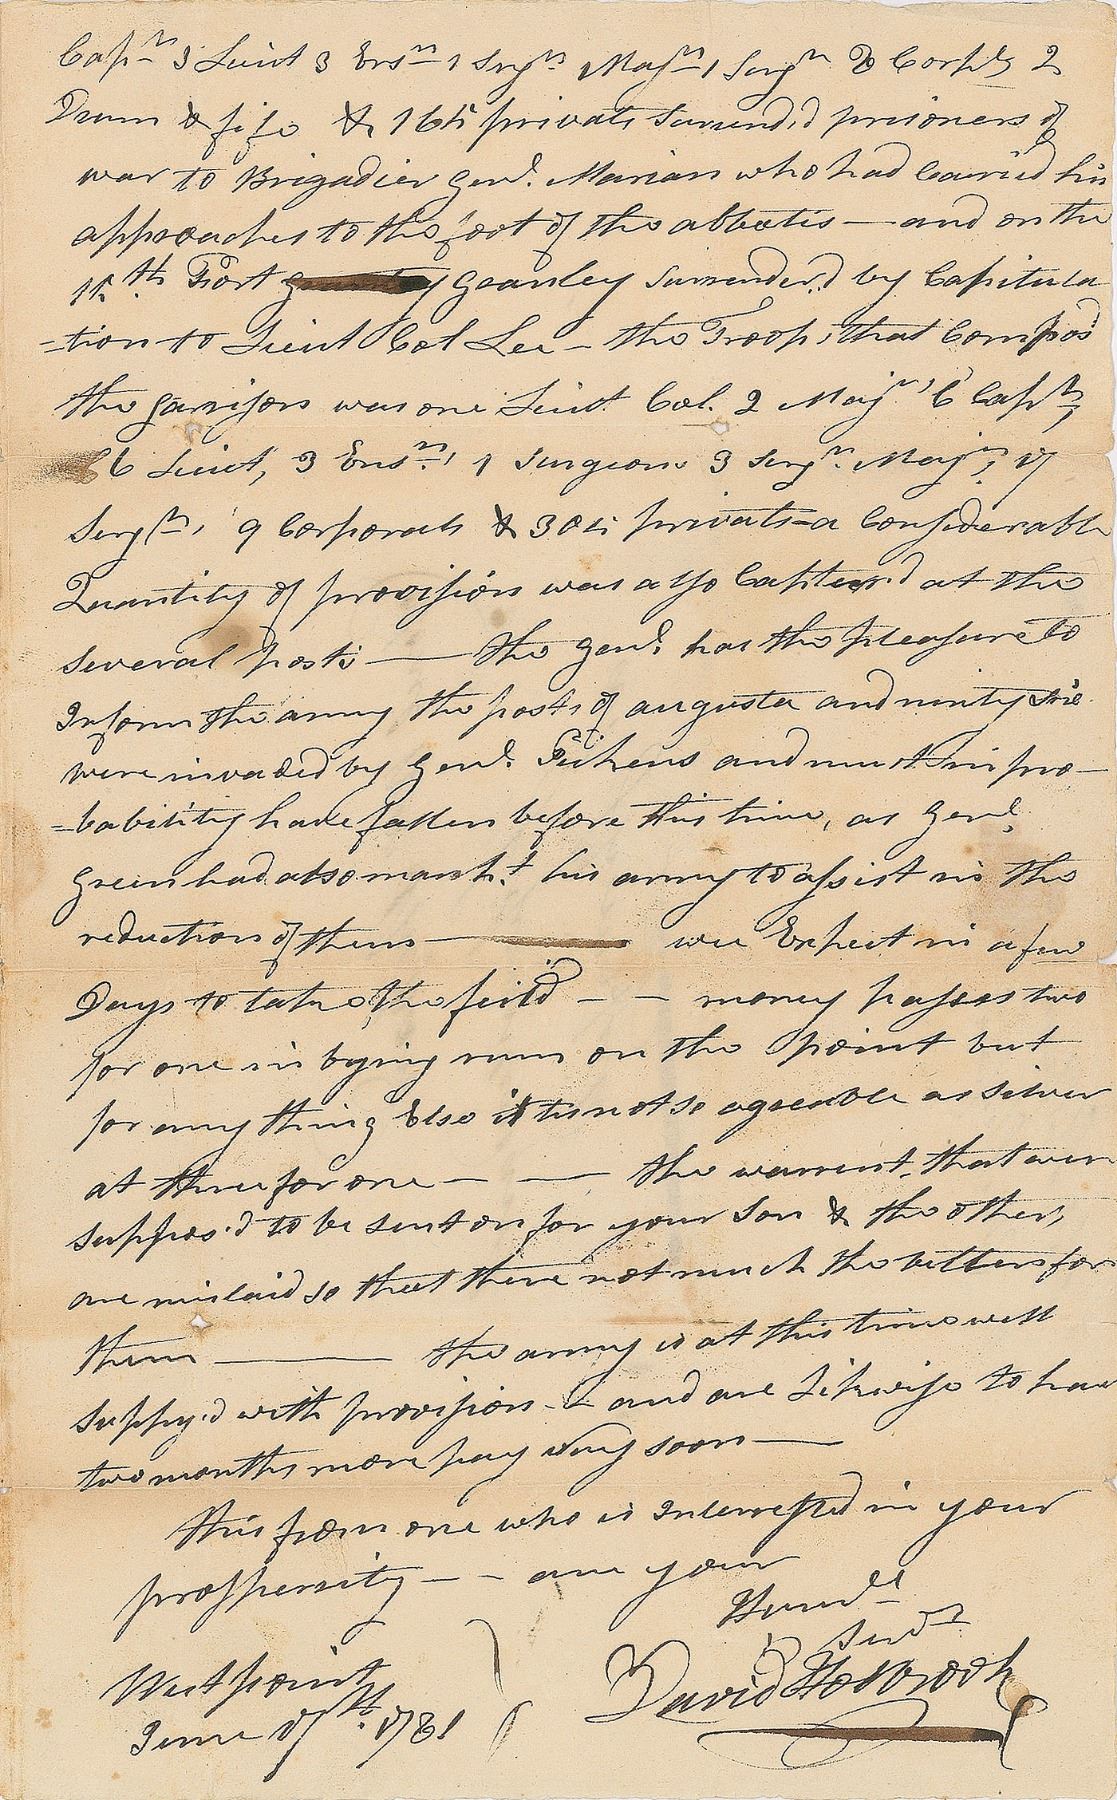 Capᵗⁿ 3 Lieut 3 Ensⁿ 1 Surgⁿ 1 Majʳ 1 Sergⁿ 8 Corpˡˢ 2
Drum & fife & 165 privats Surrend,d prisoners of
war to Brigadier Genˡ. Marian who had Carried his
approaches to the foot of the abbatis — and on the
15.ᵗʰ Fort Granley Surrender,d by Capitula
=tion to Lieut Col Lee — the Troops that Compos'd
the Garrison was one Lieut. Col. 2 Majʳˢ, 6 Capᵗⁿˢ,
6 Lieut, 3 Ensⁿˢ, 1 Surgeon 3 Sergᵗ. Majʳˢ, 17
Sergᵗˢ, 9 Corporals & 305 privats — a Considerable
Quantity of provision was also Captur'd at the
Several posts — the Genˡ. has the pleasure to
Inform the army the posts of augusta and ninty Six
were invaded by Genˡ. Pickens and must in pro-
=bability have fallen before this time, as Genˡ.
Green had also march.ᵗ his army to assist in the
reduction of them — wee Expect in a few
Days to take the feild — — money passes two
for one in bying rum on the point but
for any thing Else it is not so agreable as Silver
at three for one — — the warrent, that were
suppos'd to be sent on for your Son & the other,
are mislaid so that there not much the betters for
them — the army is at this time well
supply'd with provision — and are Likewise to have
two months more pay very soon —
this from one who is Interrested in your
prosperity — — am your
Humᵇˡ
Servᵗ
David Holbrook
West point
June 17ᵗʰ. 1781